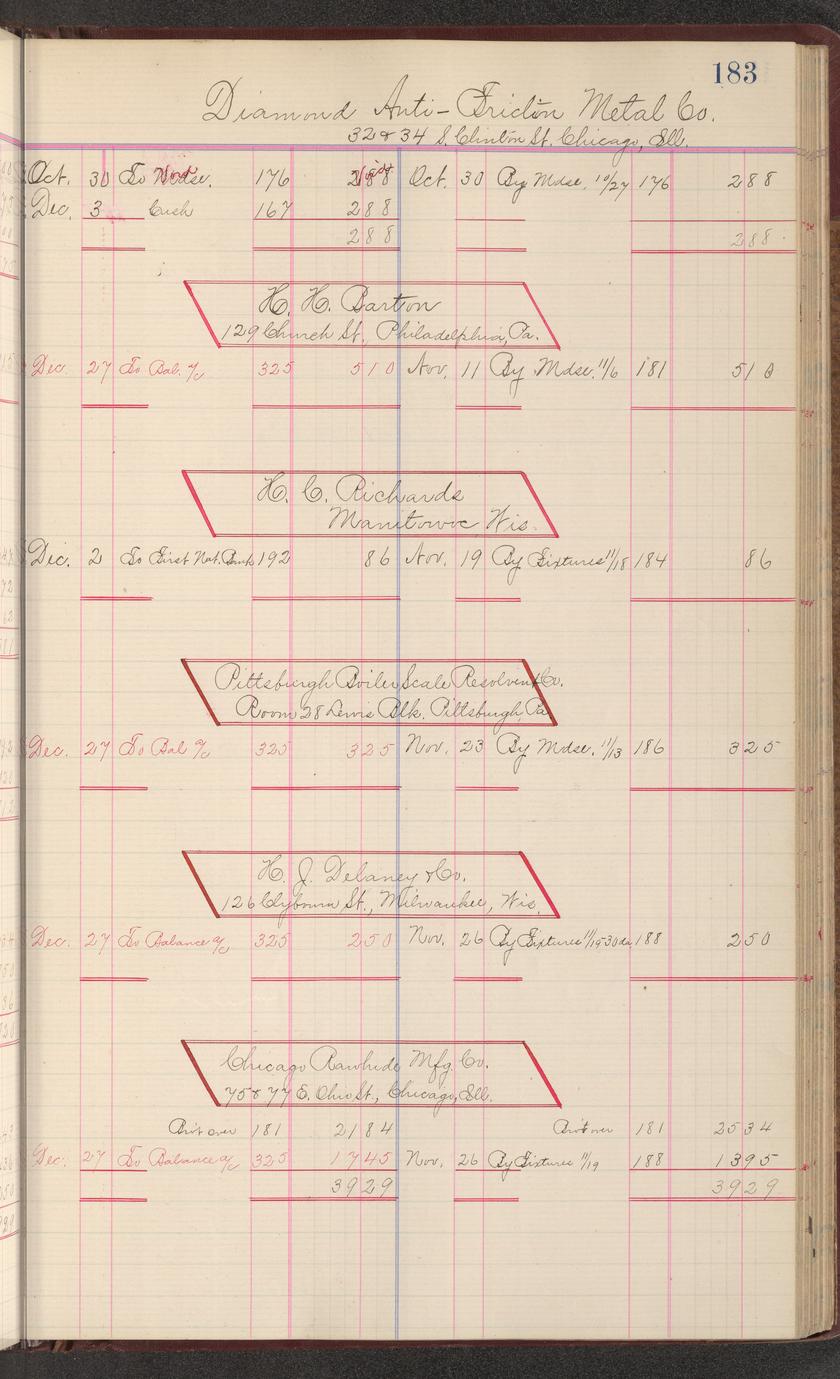 183
Diamond Anti-Friction Metal Co.
32 & 34 S. Clinton St. Chicago, Ill.
Oct. 30 To Mdse. 176 288 Oct. 30 By Mdse. 10/27 176 288
Dec. 3 Cash 167 288
288 288
H. H. Barton
129 Church St., Philadelphia, Pa.
Dec. 27 To Bal. a/c 325 510 Nov. 11 By Mdse. 11/6 181 510
H. C. Richards
Manitowoc, Wis.
Dec. 2 To First Nat. Bank 192 86 Nov. 19 By Fixtures 11/18 184 86
Pittsburgh Boiler Scale Resolvent Co.
Room 28 Lewis Blk. Pittsburgh, Pa
Dec. 27 To Bal a/c 325 325 Nov. 23 By Mdse. 11/13 186 325
H. J. Delaney & Co.
126 Clybourn St., Milwaukee, Wis.
Dec. 27 To Balance a/c 325 250 Nov. 26 By Fixtures 11/19 30 da 188 250
Chicago Rawhide Mfg. Co.
75 & 77 E. Ohio St., Chicago, Ill.
Bro't over 181 2184 Bro't over 181 2534
Dec. 27 To Balance a/c 325 1745 Nov. 26 By Fixtures 11/19 188 1395
3929 3929